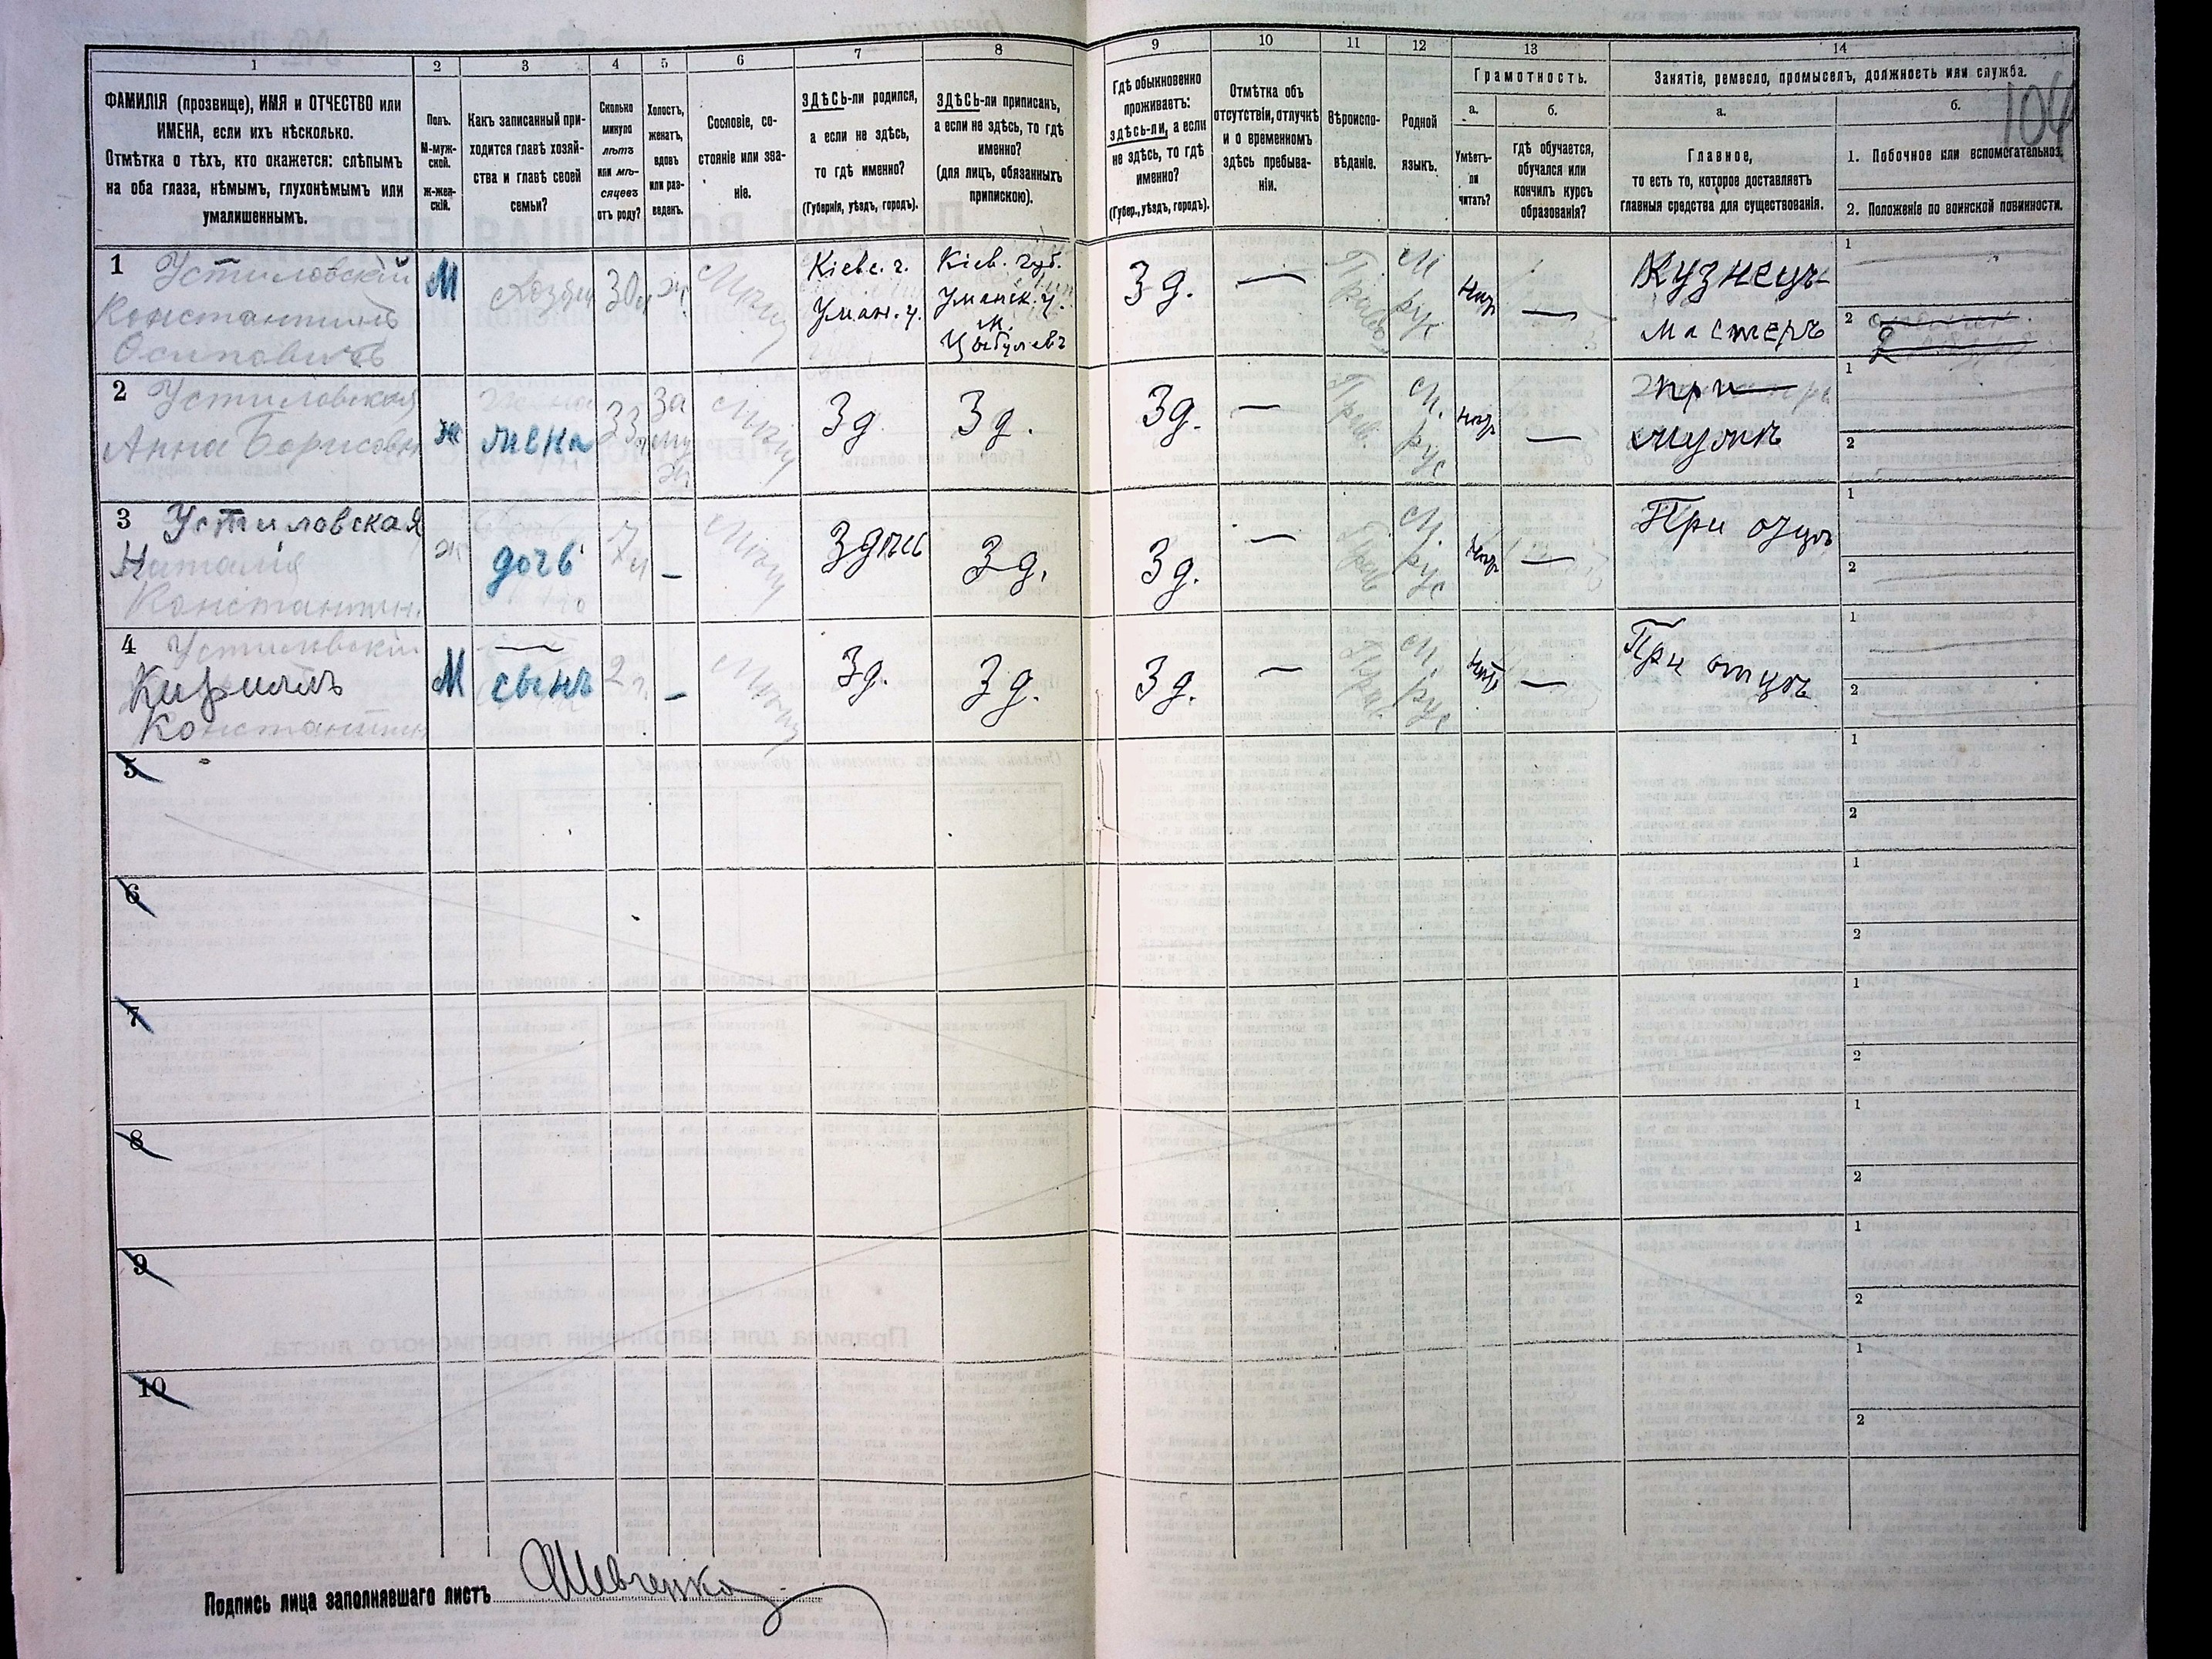 1
2
3
4
5
6
7
8
9
10
11
12
13
14
ФАМИЛІЯ (прозвище), ИМЯ и ОТЧЕСТВО или
ИМЕНА, если ихъ нѣсколько.
Отмѣтка о тѣхъ, кто окажется: слѣпымъ
на оба глаза, нѣмымъ, глухонѣмымъ или
умалишеннымъ.
Полъ.
М-муж-
ской.
Ж-жен-
скій.
Какъ записанный при-
ходится главѣ хозяй-
ства и главѣ своей
семьи?
Сколько
минуло
лѣтъ
или мѣ-
сяцевъ
отъ роду?
Холостъ,
женатъ,
вдовъ
или раз-
веденъ.
Сословіе, со-
стояніе или зва-
ніе.
ЗДѢСЬ-ли родился,
а если не здѣсь,
то гдѣ именно?
(Губернія, уѣздъ, городъ).
ЗДѢСЬ-ли приписанъ,
а если не здѣсь, то гдѣ
именно?
(для лицъ, обязанныхъ
припискою).
Гдѣ обыкновенно
проживаетъ:
здѣсь-ли, а если
не здѣсь, то гдѣ
именно?
(Губер., уѣздъ, городъ).
Отмѣтка объ
отсутствіи, отлучкѣ
и о временномъ
здѣсь пребыва-
ніи.
Вѣроиспо-
вѣданіе.
Родной
языкъ.
Грамотность.
а.
Умѣетъ-
ли
читать?
б.
гдѣ обучается,
обучался или
кончилъ курсъ
образованія?
Занятіе, ремесло, промыселъ, должность или служба.
а.
Главное,
то есть то, которое доставляетъ
главныя средства для существованія.
б.
104
1. Побочное или вспомогательное.
2. Положеніе по воинской повинности.
1 Устиловскій
Константинъ
Осиповичъ
М
Хозяин
30 ж
Кіевс. г.
Уман. у.
Кіев. губ.
Уманск. у.
м.
Цыбулевъ
З д. —
М
рус
—
Кузнецъ
мастеръ
1
2
2 Устиловская
Анна Борисовн
ж
жена
33
за
му
ж
З д.
З д.
З д. —
Прав.
М.
рус
—
при
мужѣ
1
2
3 Устиловская
Наталія
Константин.
ж
дочь
7
–
Здѣсь
З д.
З д. —
Прав
М.
рус
—
При отцѣ
1
2
4 Устиловскій
Кириллъ
Константин
М
сынъ
2 г.
–
З д.
З д.
З д. —
Прав
М.
рус
—
При отцѣ
1
2
5
1
2
6
1
2
7
1
2
8
1
2
9
1
2
10
1
2
Подпись лица заполнявшаго листъ Шевченко